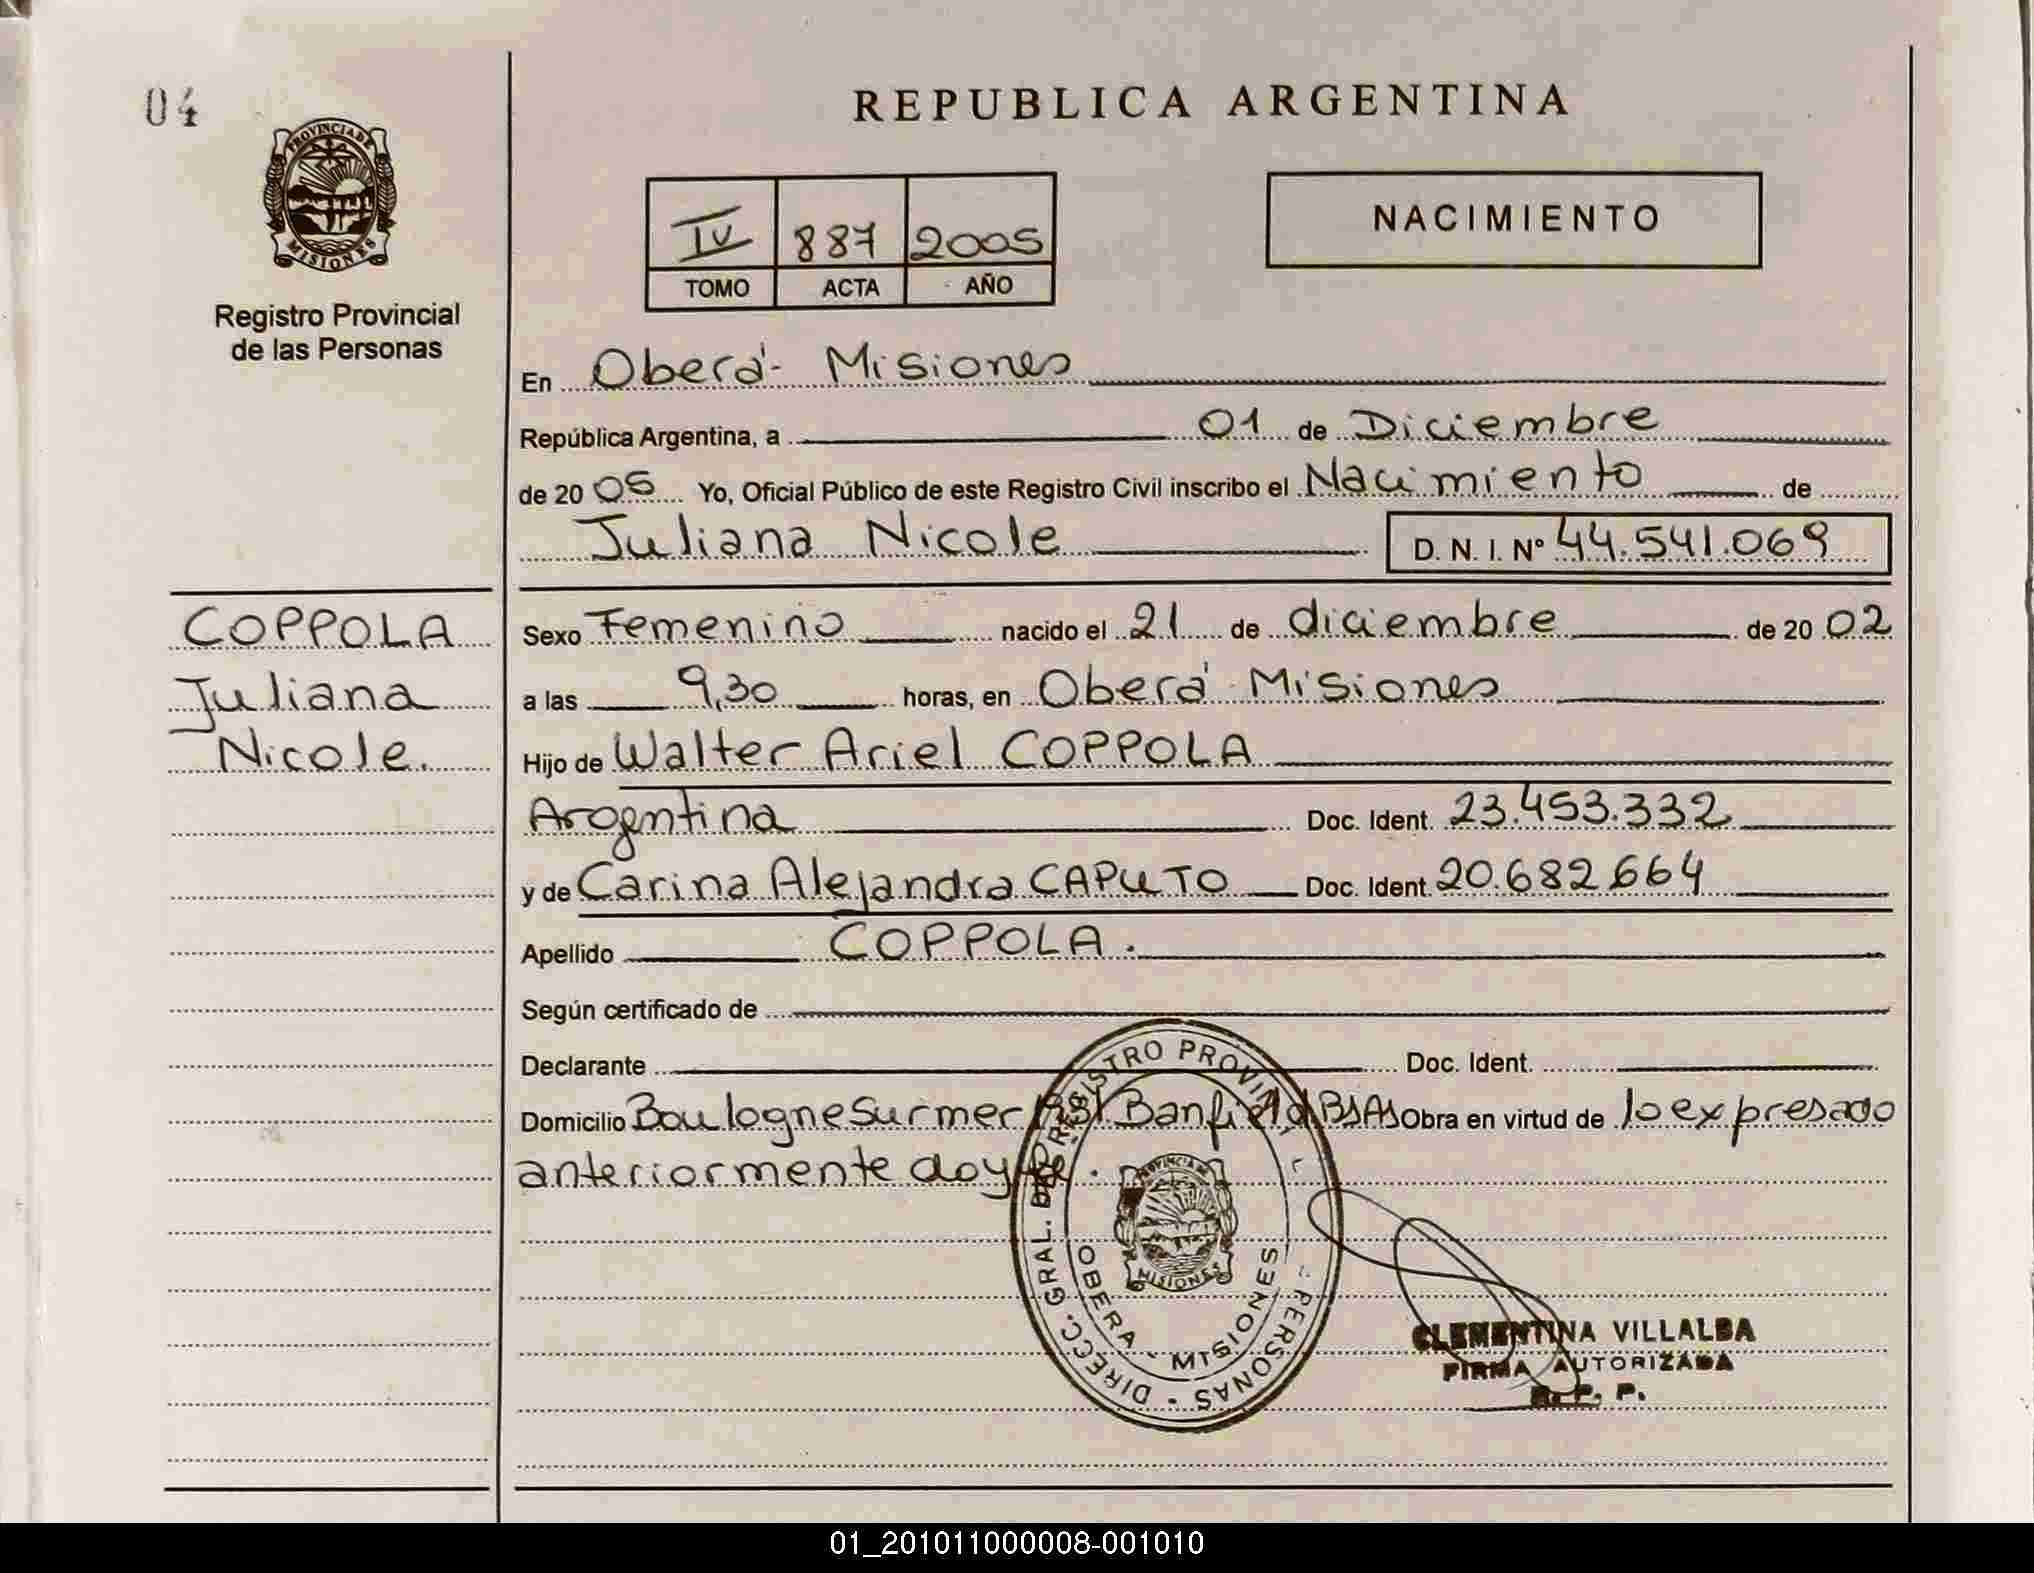 04
PROVINCIA DE
MISIONES
Registro Provincial
de las Personas
REPUBLICA ARGENTINA
IV 887 2005
TOMO ACTA AÑO
NACIMIENTO
En Oberá - Misiones
República Argentina, a 01 de Diciembre
de 20 05 Yo, Oficial Público de este Registro Civil inscribo el Nacimiento de
Juliana Nicole D. N. I. Nº 44.541.069
COPPOLA
Juliana
Nicole.
Sexo Femenino nacido el 21 de diciembre de 20 02
a las 9,30 horas, en Oberá - Misiones
Hijo de Walter Ariel COPPOLA
Argentina Doc. Ident. 23.453.332
y de Carina Alejandra CAPUTO Doc. Ident. 20.682.664
Apellido COPPOLA.
Según certificado de
Declarante Doc. Ident.
Domicilio Boulogne Sur mer Banfield BsAs Obra en virtud de lo expresado
anteriormente doy fe.
DIRECC. GRAL. DEL REGISTRO PROVINCIAL PERSONAS -
PROVINCIA DE
MISIONES
OBERA - MISIONES
CLEMENTINA VILLALBA
FIRMA AUTORIZADA
R. P. P.
01_201011000008-001010